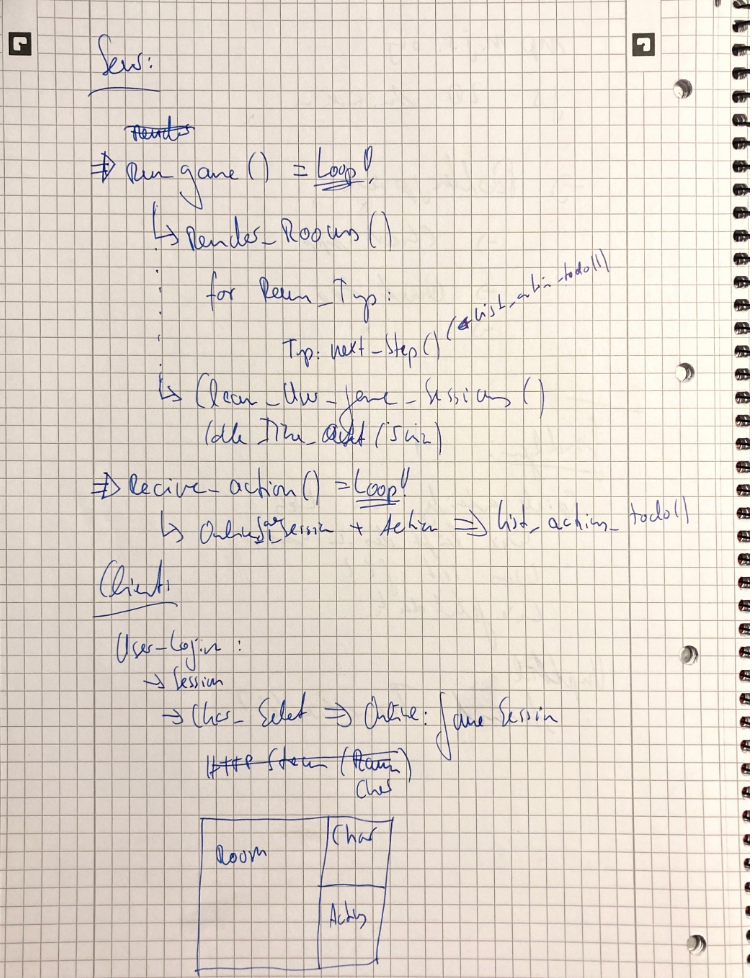 Serv:
Render
⇒ Run_game() = Loop!
↳ Render_Rooms()
for Raum_Typ:
Typ: next_Step() (list_action_todo[])
↳ Clean_Up_Game_Sessions()
Idle Time_out (5min)
⇒ Recive_action() = Loop!
↳ Online Session + Action ⇒ list_action_todo[]
Client:
User-Login:
→ Session
→ Char_Selet ⇒ Online: Game Session
HTTP Steam (Raum)
Char
Room
Char
Action